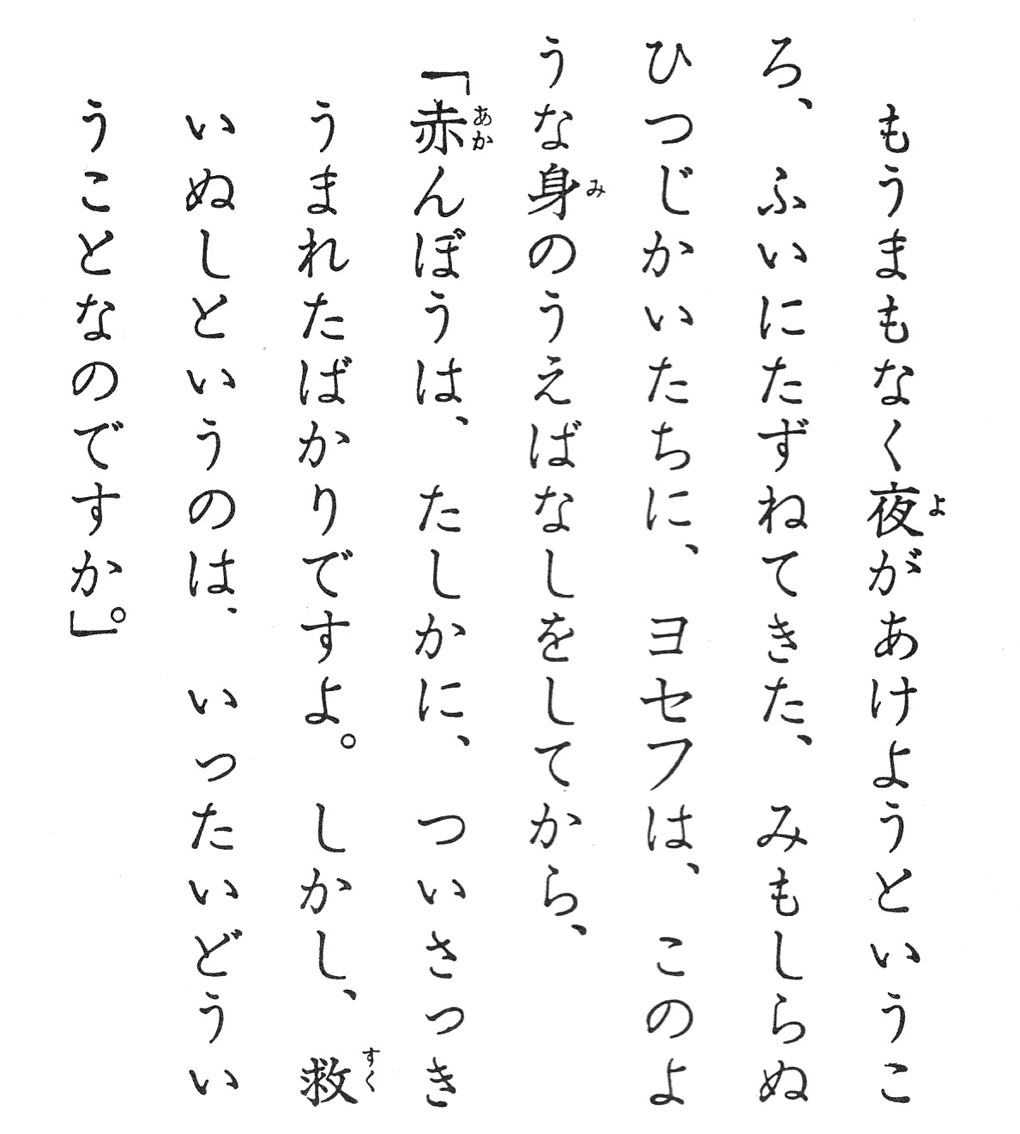 もうまもなく夜があけようというこ
ろ、ふいにたずねてきた、みもしらぬ
ひつじかいたちに、ヨセフは、このよ
うな身のうえばなしをしてから、
「赤んぼうは、たしかに、ついさっき
うまれたばかりですよ。しかし、救
いぬしというのは、いったいどうい
うことなのですか。」